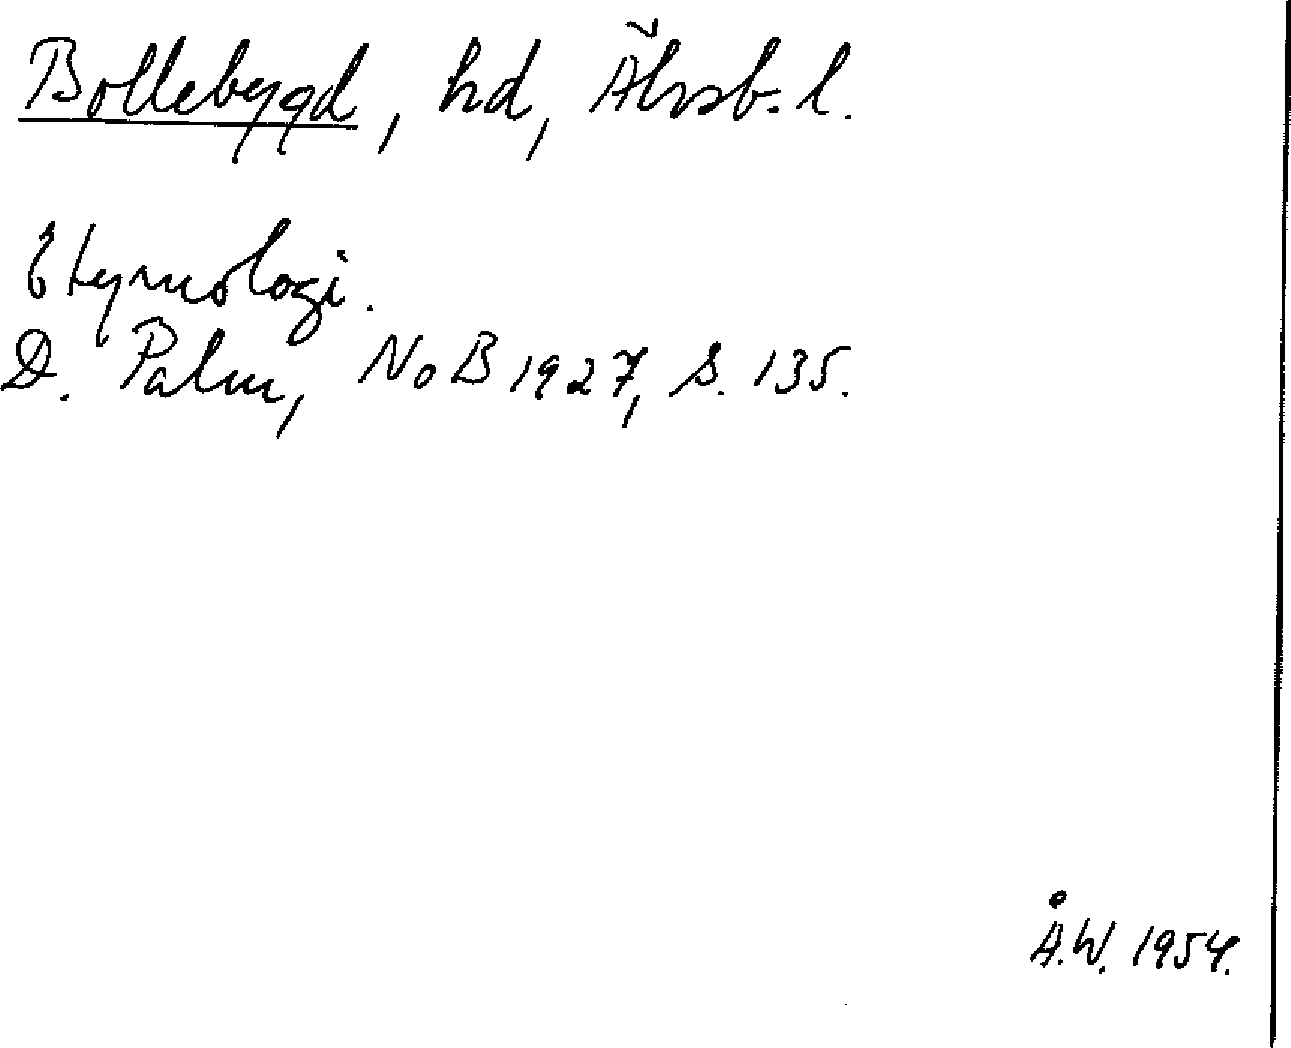 Bollebygd, hd, Älvsb. l.
Etymologi.
D. Palm, NoB 1927, s. 135.
Å.W. 1954.